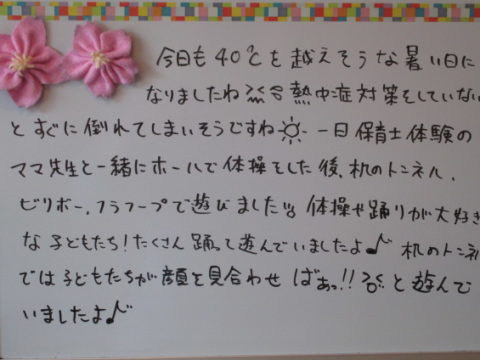 今日も40℃を越えそうな暑い日に
なりましたね 熱中症対策をしていない
とすぐに倒れてしまいそうですね 一日保育士体験の
ママ先生と一緒にホールで体操をした後、机のトンネル、
ビリボー、フラフープで遊びました!! 体操や踊りが大好き
な子どもたち！たくさん踊って遊んでいましたよ♪ 机のトンネル
では子どもたちが顔を見合わせ ばぁっ!! と遊んで
いましたよ♪